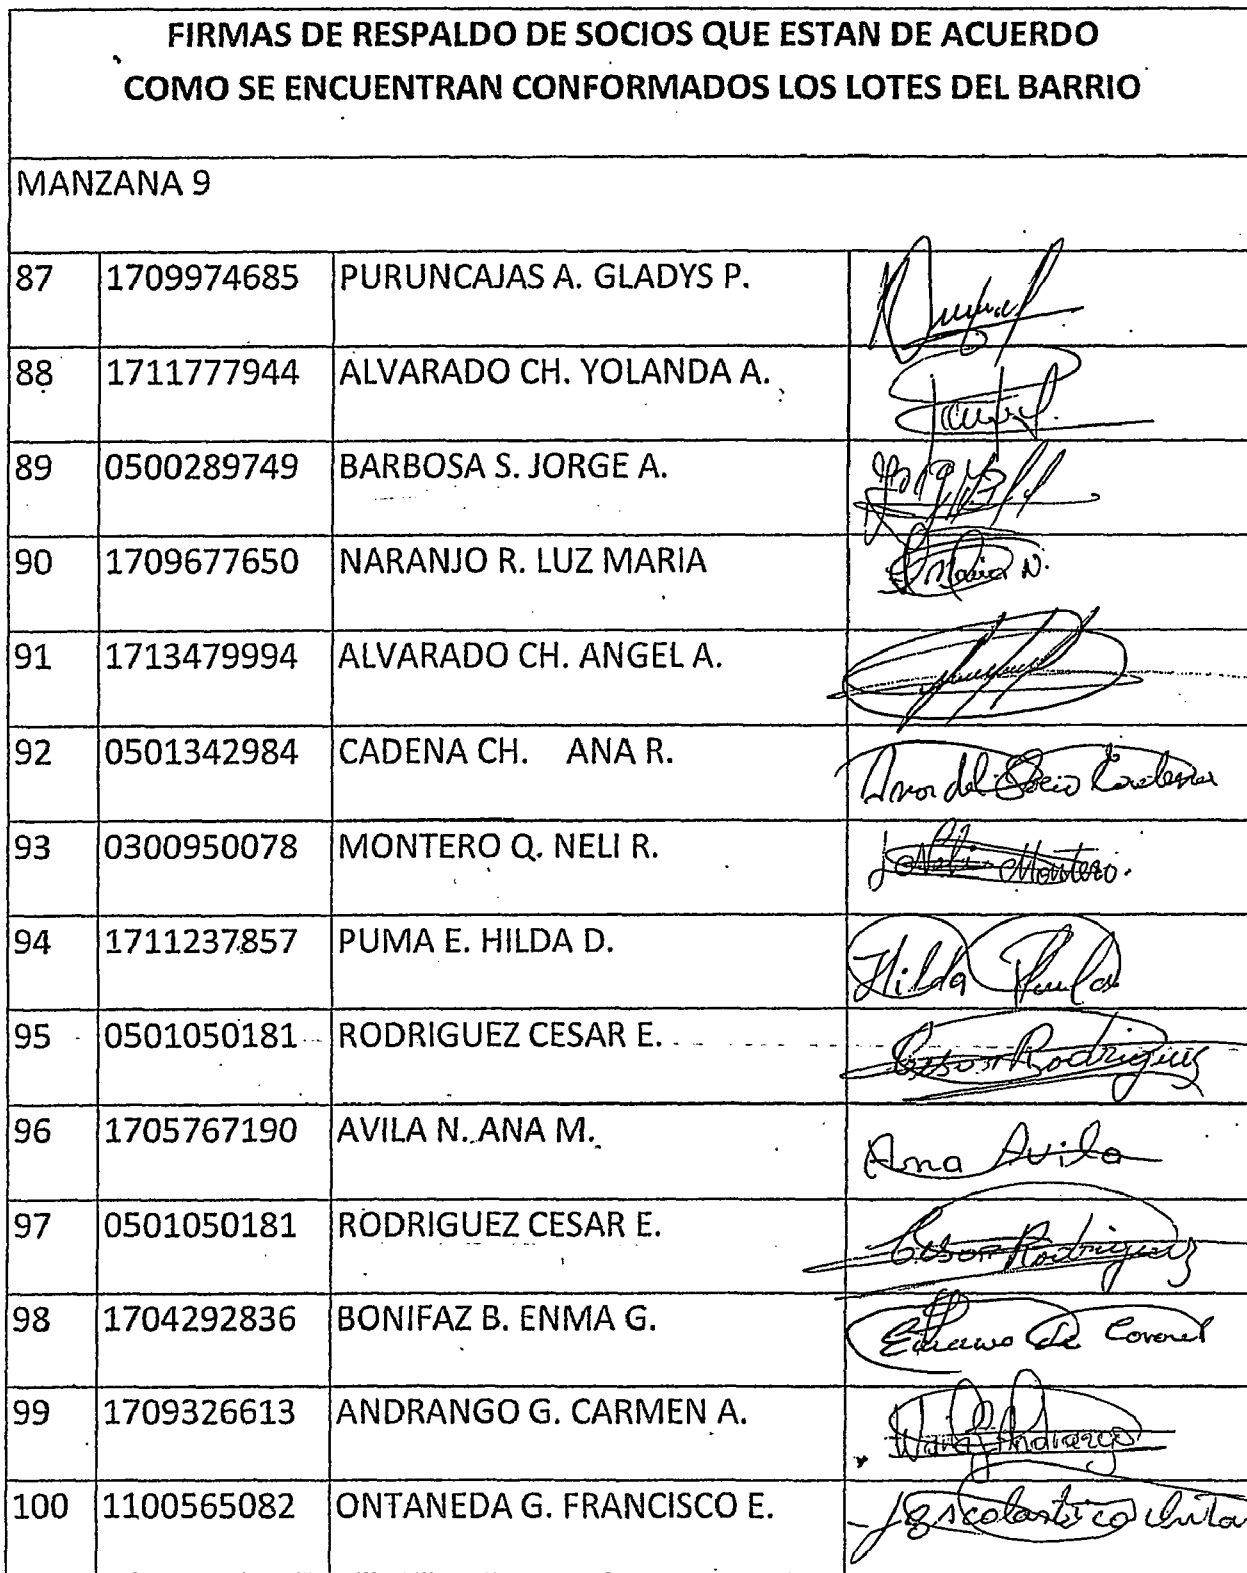 FIRMAS DE RESPALDO DE SOCIOS QUE ESTAN DE ACUERDO
COMO SE ENCUENTRAN CONFORMADOS LOS LOTES DEL BARRIO
MANZANA 9
87 1709974685 PURUNCAJAS A. GLADYS P.
88 1711777944 ALVARADO CH. YOLANDA A.
89 0500289749 BARBOSA S. JORGE A.
90 1709677650 NARANJO R. LUZ MARIA Maria N.
91 1713479994 ALVARADO CH. ANGEL A.
92 0501342984 CADENA CH. ANA R.
93 0300950078 MONTERO Q. NELI R. Montero.
94 1711237857 PUMA E. HILDA D. Hilda
95 0501050181 RODRIGUEZ CESAR E. Cesar Rodriguez
96 1705767190 AVILA N. ANA M. Ana Avila
97 0501050181 RODRIGUEZ CESAR E. Cesar Rodriguez
98 1704292836 BONIFAZ B. ENMA G. de Coronel
99 1709326613 ANDRANGO G. CARMEN A. Andrango
100 1100565082 ONTANEDA G. FRANCISCO E.